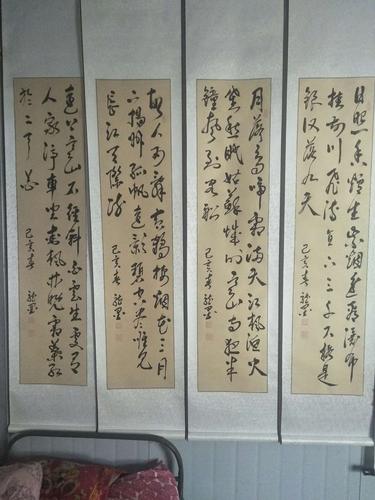 日照香炉生紫烟遥看瀑布
挂前川飞流直下三千尺疑是
银河落九天
己亥春 墨
月落乌啼霜满天江枫渔火
对愁眠姑苏城外寒山寺夜半
钟声到客船
己亥春 墨
故人西辞黄鹤楼烟花三月
下扬州孤帆远影碧空尽唯见
长江天际流
己亥春 墨
远上寒山石径斜白云生处有
人家停车坐爱枫林晚霜叶红
于二月花
己亥春 墨